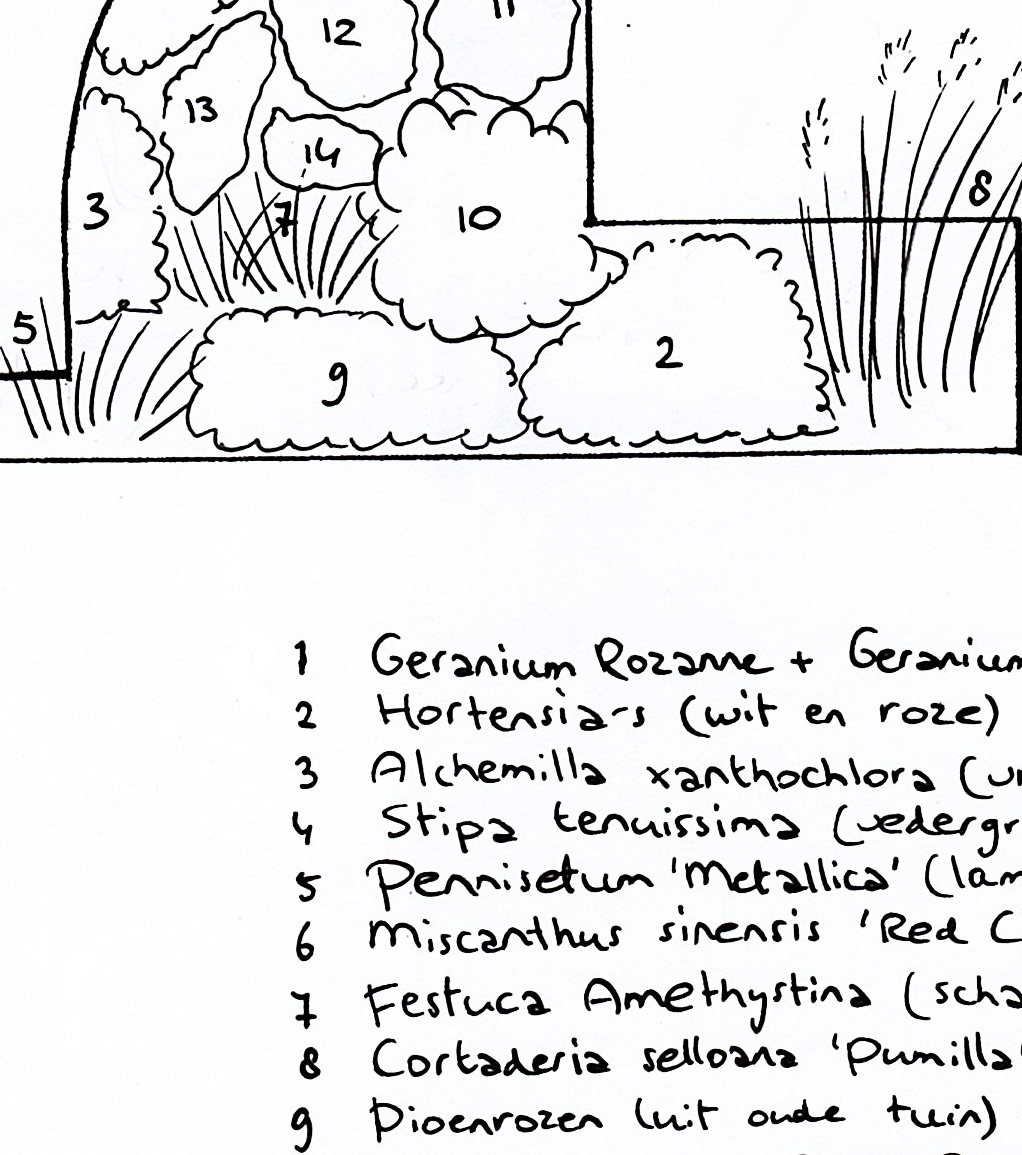 11
12
13
14
3
7
10
8
5
2
9
1 Geranium Rozanne + Geranium
2 Hortensia's (wit en roze)
3 Alchemilla xanthochlora (vr
4 Stipa tenuissima (vedergr
5 Pennisetum 'Metallica' (lam
6 Miscanthus sinensis 'Red C
7 Festuca Amethystina (scha
8 Cortaderia selloana 'Pumilla'
9 Pioenrozen (uit oude tuin)